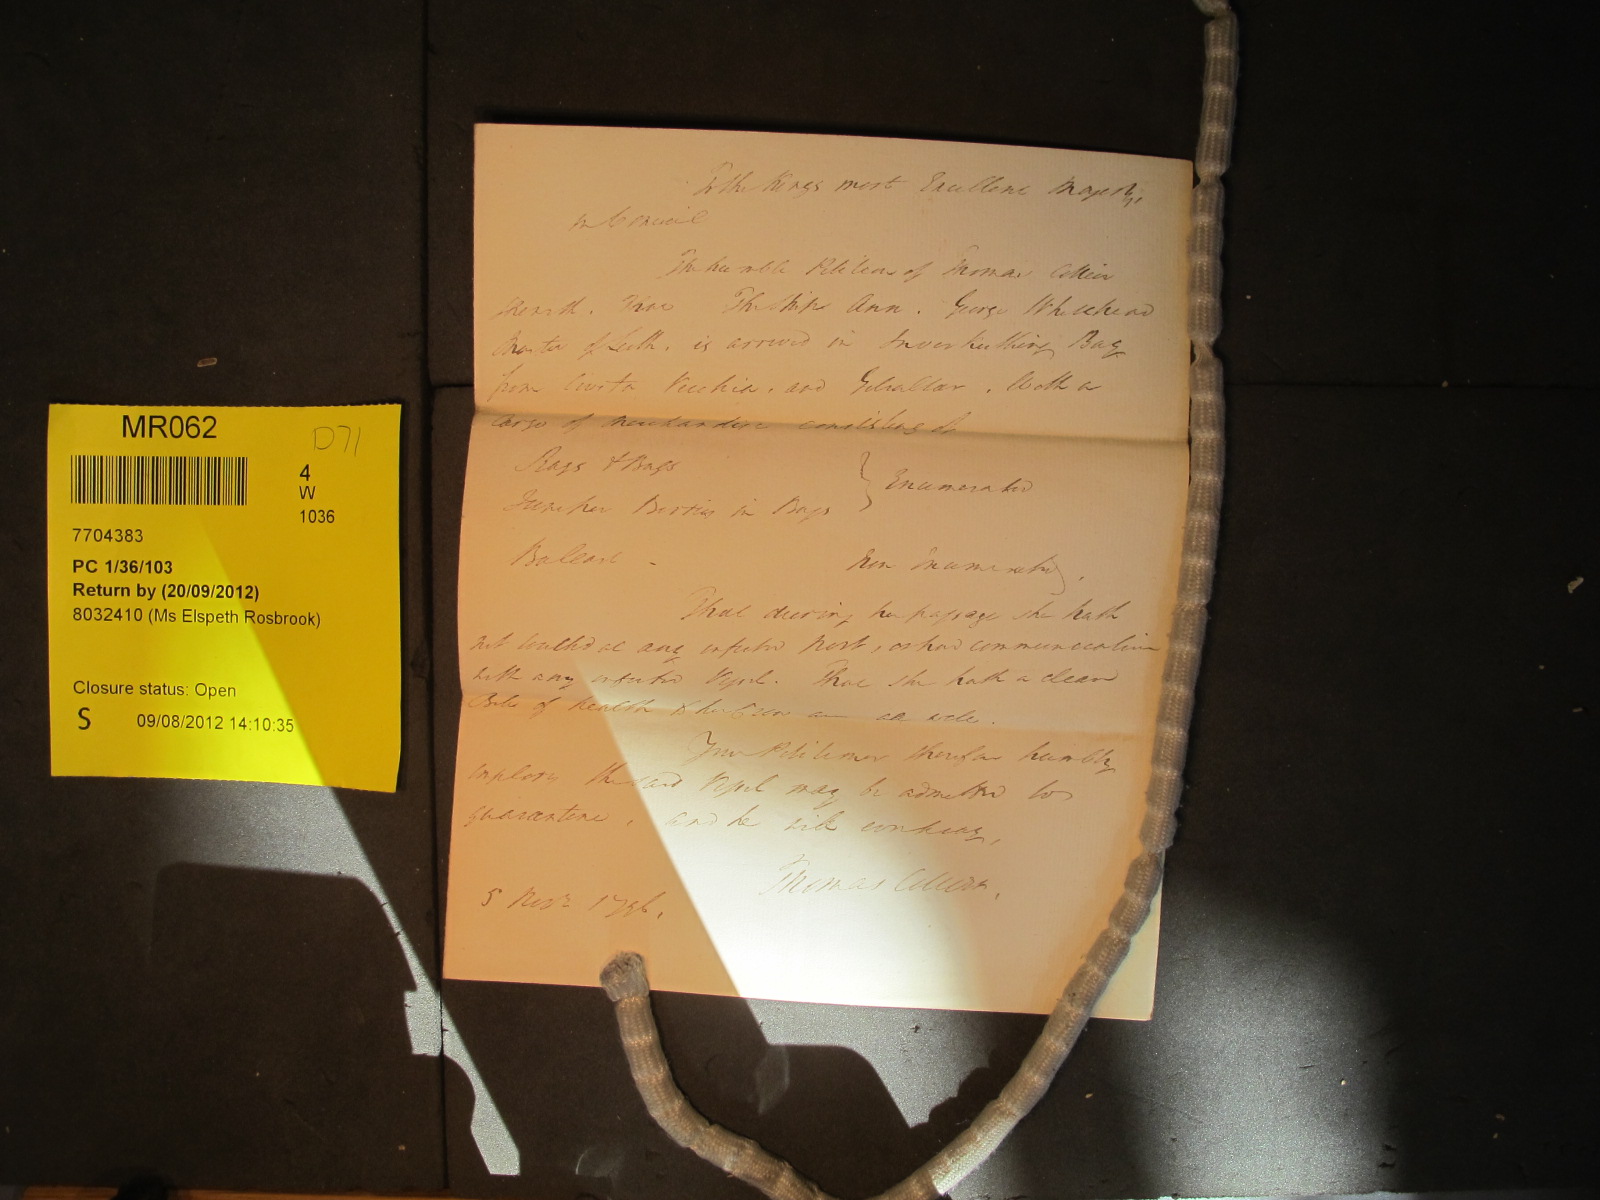 MR062
D71
4
W
1036
7704383
PC 1/36/103
Return by (20/09/2012)
8032410 (Ms Elspeth Rosbrook)
Closure status: Open
S 09/08/2012 14:10:35
To the Kings most Excellent Majesty,
in Council
The humble Petition of Thomas
Sheweth. That The Ship Ann. George Whitehead
Master of Leith. is arrived in Inverkeithing Bay
from Civita Vecchia. and Gibraltar. With a
Cargo of Merchandise consisting of
Rags & Bags } Enumerated
Juniper Berries in Bags
Ballast - Non Enumerated,
That during her passage she hath
not touched at any infected Port, or had communication
with any infected Vessel. That she hath a clean
Bill of health & her Crew are all well.
Your Petitioner therefore humbly
implores the said Vessel may be admitted to
quarantine, and he will ever pray,
Thomas
5 Novr 1796.